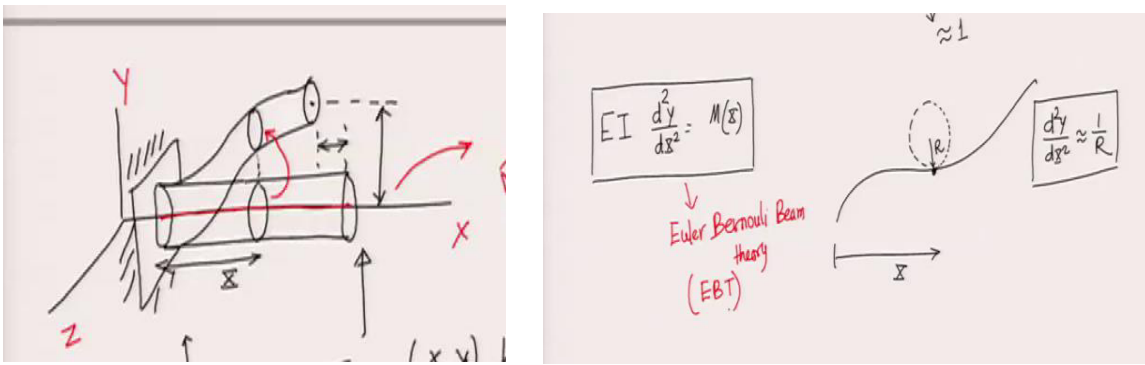 Y
X
Z
X
(X, Y)
≈ 1
EI d²y/dX² = M(X)
Euler Bernouli Beam
theory
(EBT)
R
X
d²y/dX² ≈ 1/R